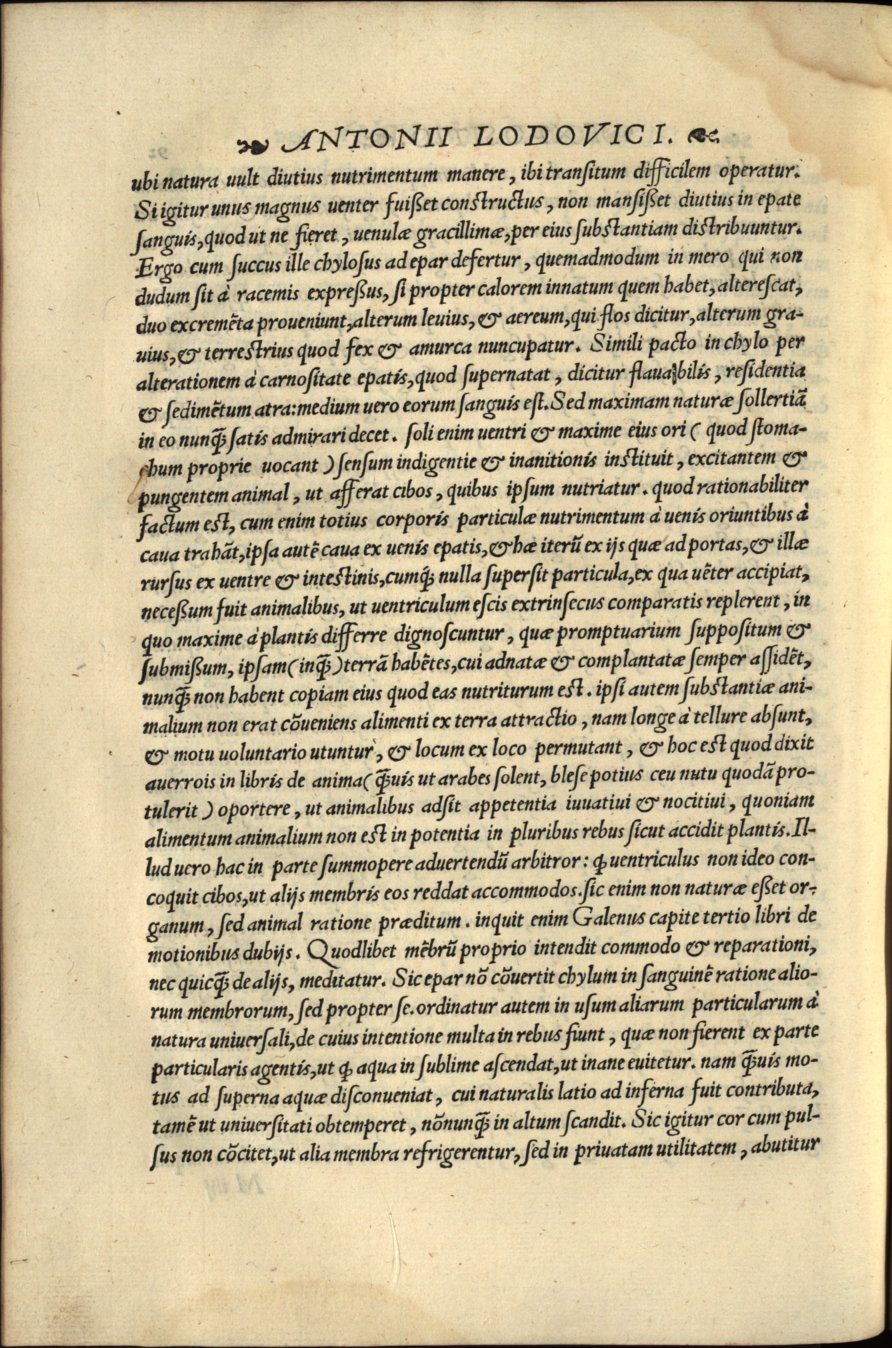 ANTONII LODOVICI.
ubi natura uult diutius nutrimentum manere, ibi transitum difficilem operatur.
Si igitur unus magnus uenter fuißet constructus, non mansißet diutius in epate
sanguis, quod ut ne fieret, uenulæ gracillimæ, per eius substantiam distribuuntur.
Ergo cum succus ille chylosus ad epar defertur, quemadmodum in mero qui non
dudum sit à racemis expreßus, si propter calorem innatum quem habet, alterescat,
duo excremẽta proueniunt, alterum leuius, & aereum, qui flos dicitur, alterum gra-
uius, & terrestrius quod fex & amurca nuncupatur. Simili pacto in chylo per
alterationem à carnositate epatis, quod supernatat, dicitur flaua bilis, residentia
& sedimẽtum atra: medium uero eorum sanguis est. Sed maximam naturæ sollertiã
in eo nunq̃ satis admirari decet. soli enim uentri & maxime eius ori ( quod stoma-
chum proprie uocant ) sensum indigentie & inanitionis instituit, excitantem &
pungentem animal, ut afferat cibos, quibus ipsum nutriatur. quod rationabiliter
factum est, cum enim totius corporis particulæ nutrimentum à uenis oriuntibus à
caua trahãt, ipsa autẽ caua ex uenis epatis, & hæ iterũ ex ijs quæ ad portas, & illæ
rursus ex uentre & intestinis, cumq́; nulla supersit particula, ex qua uẽter accipiat,
neceßum fuit animalibus, ut uentriculum escis extrinsecus comparatis replerent, in
quo maxime à plantis differre dignoscuntur, quæ promptuarium suppositum &
submißum, ipsam ( inq̃ ) terrã habẽtes, cui adnatæ & complantatæ semper assidẽt,
nunq̃ non habent copiam eius quod eas nutriturum est. ipsi autem substantiæ ani-
malium non erat cõueniens alimenti ex terra attractio, nam longe à tellure absunt,
& motu uoluntario utuntur, & locum ex loco permutant, & hoc est quod dixit
auerrois in libris de anima ( q̃uis ut arabes solent, blese potius ceu nutu quodã pro-
tulerit ) oportere, ut animalibus adsit appetentia iuuatiui & nocitiui, quoniam
alimentum animalium non est in potentia in pluribus rebus sicut accidit plantis. Il-
lud uero hac in parte summopere aduertendũ arbitror: ꝙ uentriculus non ideo con-
coquit cibos, ut alijs membris eos reddat accommodos. sic enim non naturæ eßet or-
ganum, sed animal ratione præditum. inquit enim Galenus capite tertio libri de
motionibus dubijs. Quodlibet mẽbrũ proprio intendit commodo & reparationi,
nec quicq̃ de alijs, meditatur. Sic epar nõ cõuertit chylum in sanguinẽ ratione alio-
rum membrorum, sed propter se. ordinatur autem in usum aliarum particularum à
natura uniuersali, de cuius intentione multa in rebus fiunt, quæ non fierent ex parte
particularis agentis, ut ꝙ aqua in sublime ascendat, ut inane euitetur. nam q̃uis mo-
tus ad superna aquæ disconueniat, cui naturalis latio ad inferna fuit contributa,
tamẽ ut uniuersitati obtemperet, nõnunq̃ in altum scandit. Sic igitur cor cum pul-
sus non cõcitet, ut alia membra refrigerentur, sed in priuatam utilitatem, abutitur